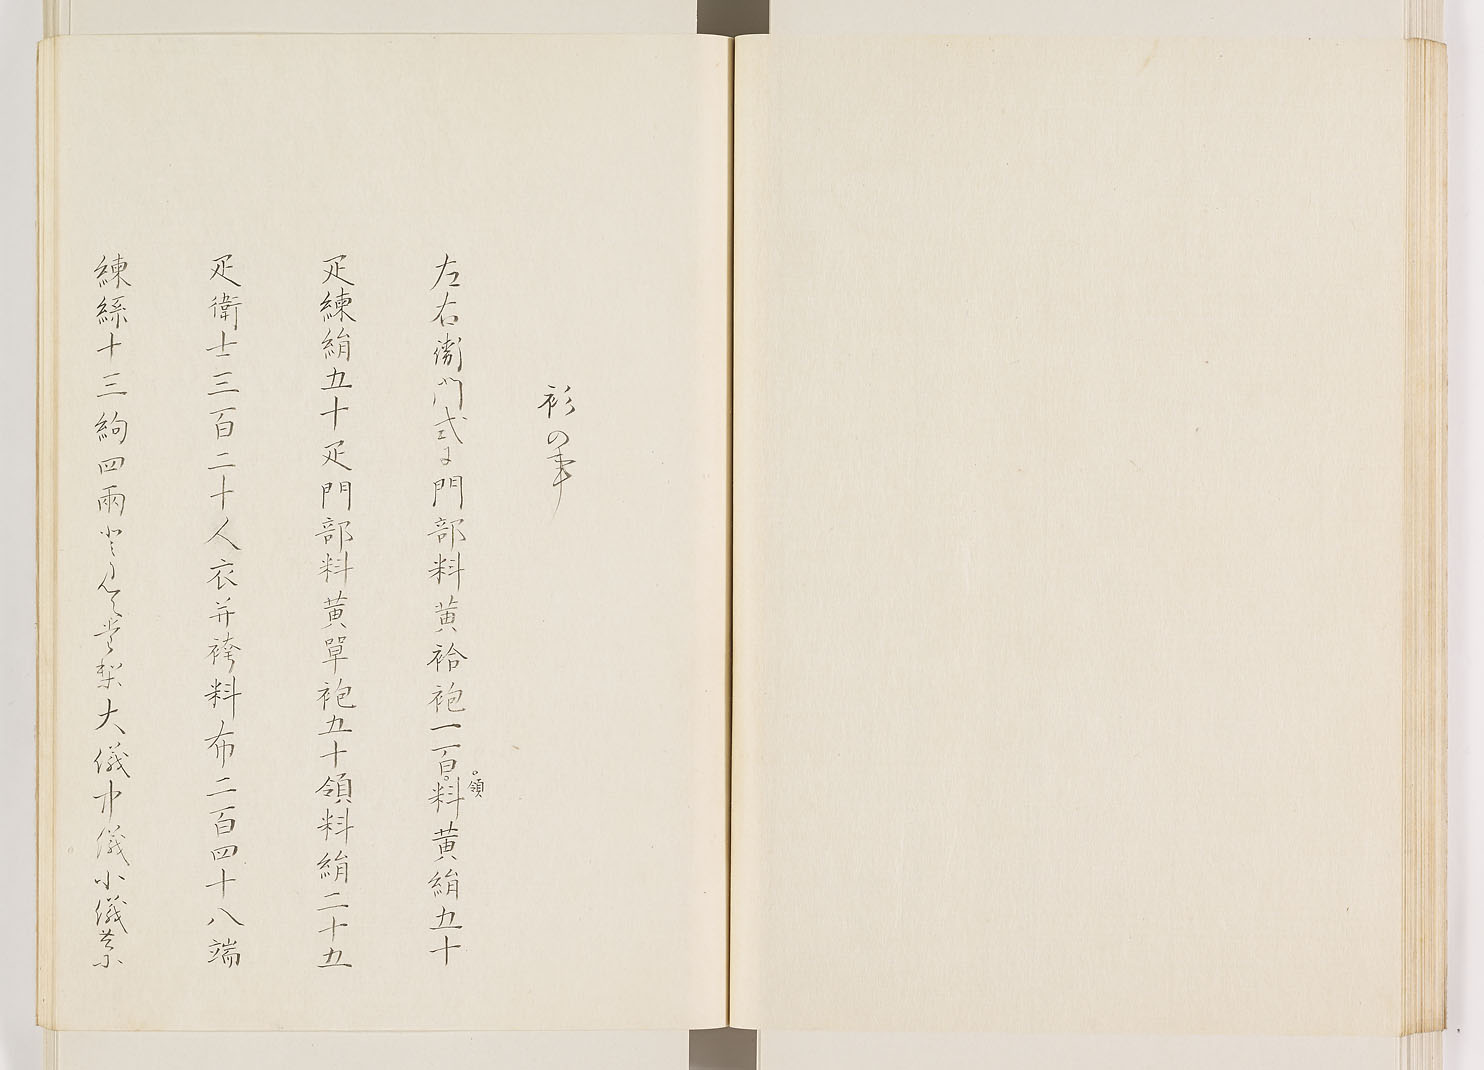 衫の事
左右衛門式に門部料黄袷袍一百領料黄絹五十
疋練絹五十疋門部料黄單袍五十領料絹二十五
疋衛士三百二十人衣并袴料布二百四十八端
練絲十三絇四兩と大儀中儀小儀